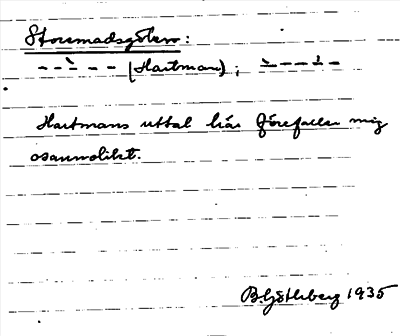 Storsmadsgölen:
- - - - - (Hartman); - - - - -
Hartmans uttal här förefaller mig
osannolikt.
B. Götlberg 1935